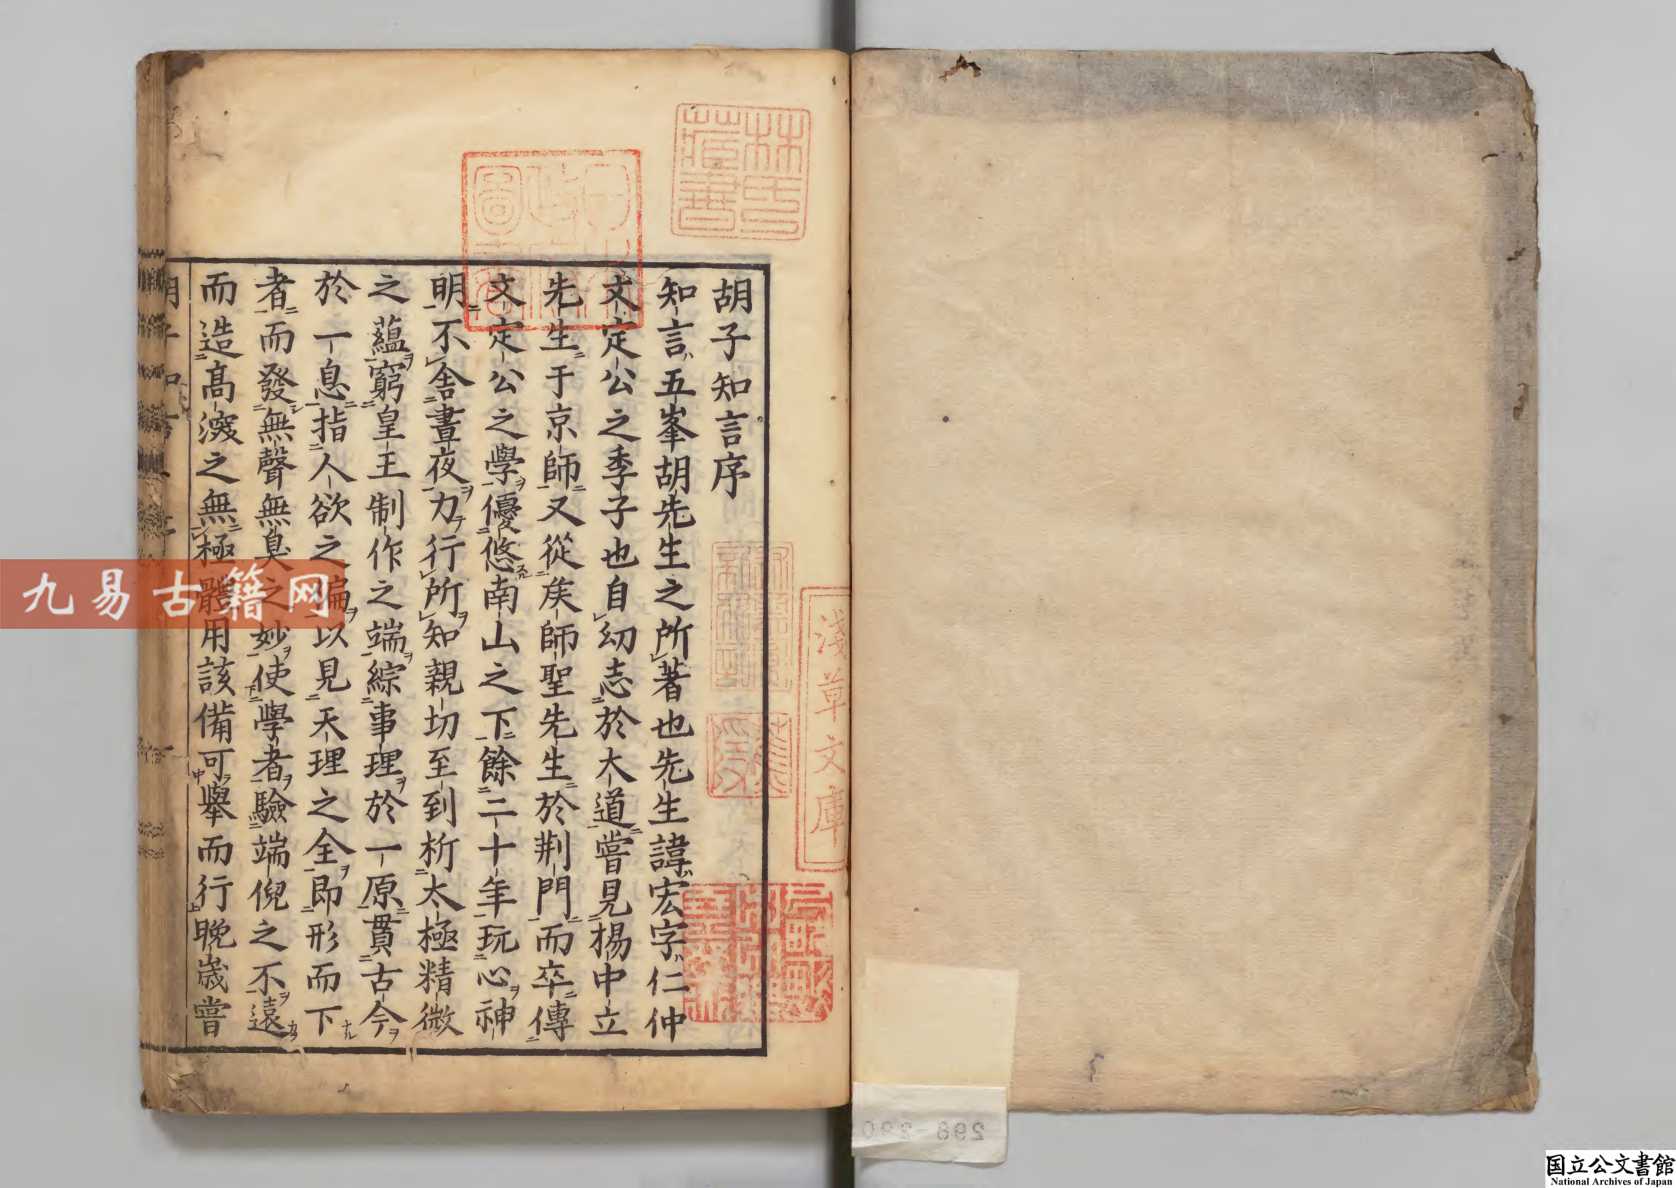 胡子知言序
知言五峯胡先生之所著也先生諱宏字仁仲
文定公之季子也自幼志於大道嘗見楊中立
先生于京師又從矦師聖先生於荆門而卒傳
文定公之學優悠南山之下餘二十年玩心神
明不舍晝夜力行所知親切至到析太極精微
之蘊窮皇王制作之端綜事理於一原貫古今
於一息指人欲之偏以見天理之全即形而下
者而發無聲無臭之妙使學者驗端倪之不遠
而造髙深之無極體用該備可舉而行晩歳嘗
林氏藏書
淺草文庫
九易古籍网
298-290
国立公文書館
National Archives of Japan